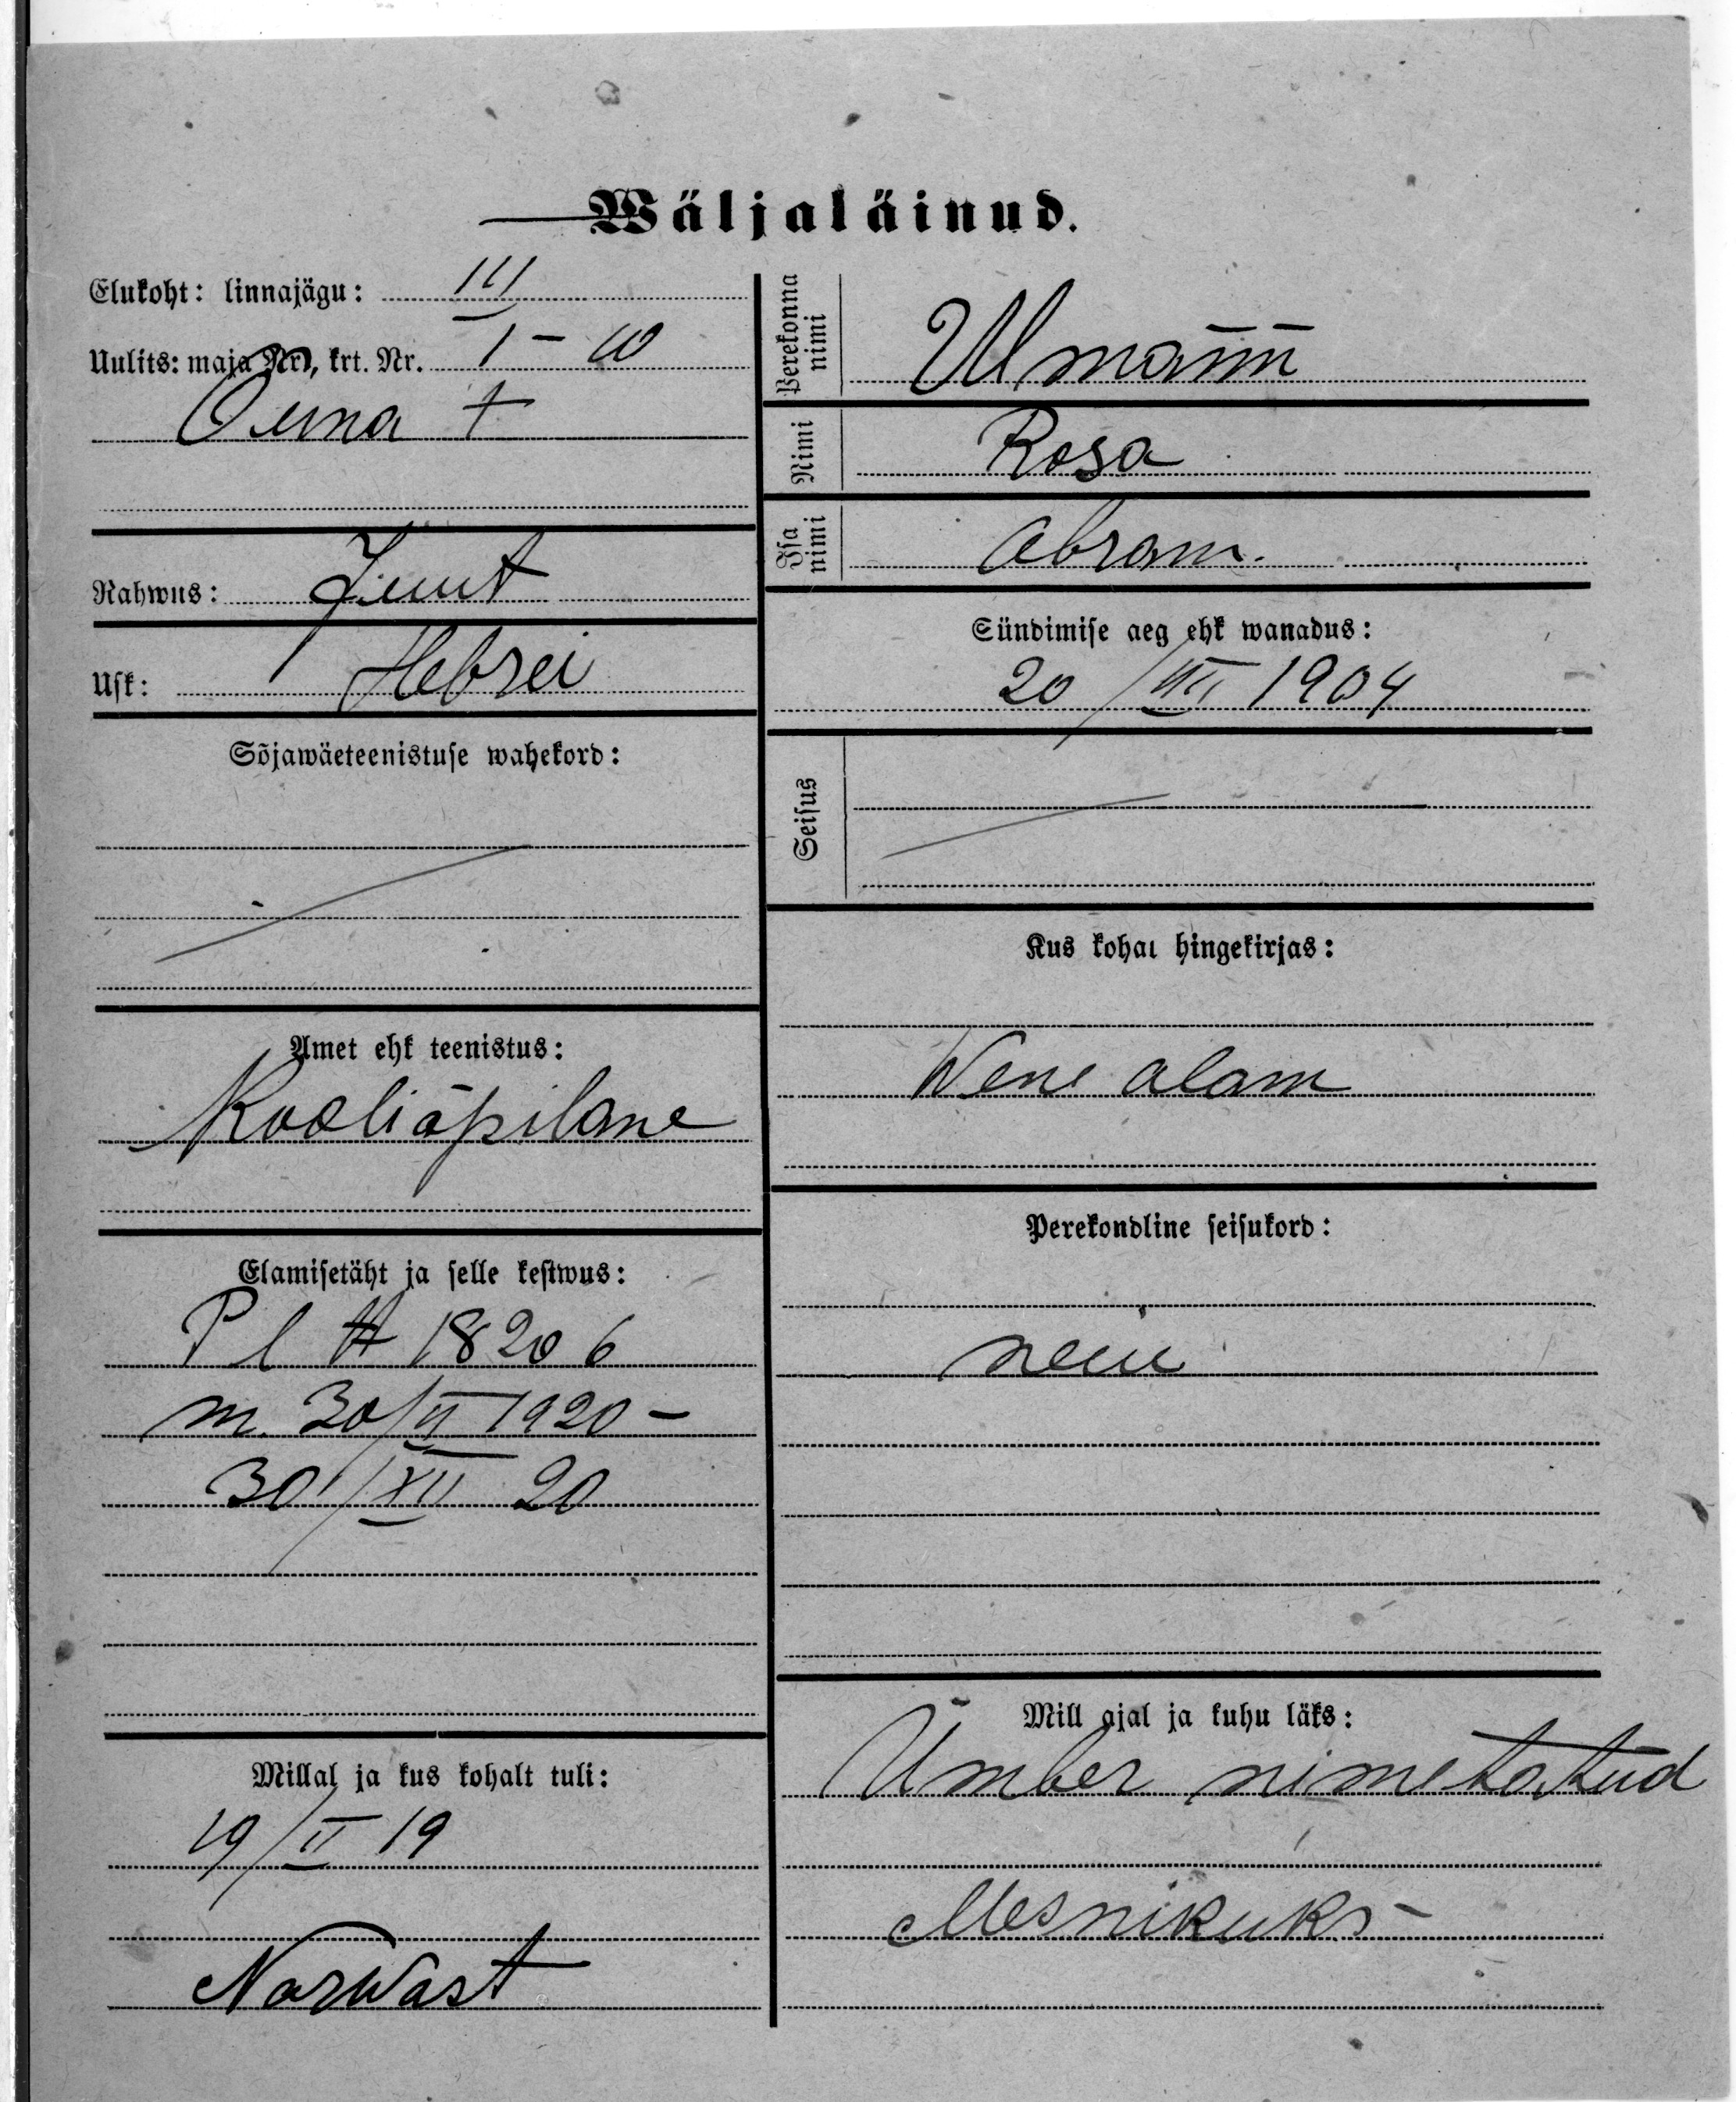 Wäljaläinud.
Elukoht: linnajägu: III
Uulits: maja Nr., krt. Nr. 1 – 10
Rahwus: Juut
Usk: Hebrei
Sõjawäeteenistuse wahekord:
Amet ehk teenistus:
Kooliõpilane
Elamisetäht ja selle kestwus:
18206
m. 30/VI 1920 –
30/XII 20
Millal ja kus kohalt tuli:
19/II 19
Narwast
Perekonna nimi
Ulmann
Nimi
Rosa
Isa nimi
Abram.
Sündimise aeg ehk wanadus:
1904
Seisus
Kus kohal hingekirjas:
Wene alam
Perekondline seisukord:
neiu
Mill ajal ja kuhu läks:
Ümber nimetatud
Mesnikuks –